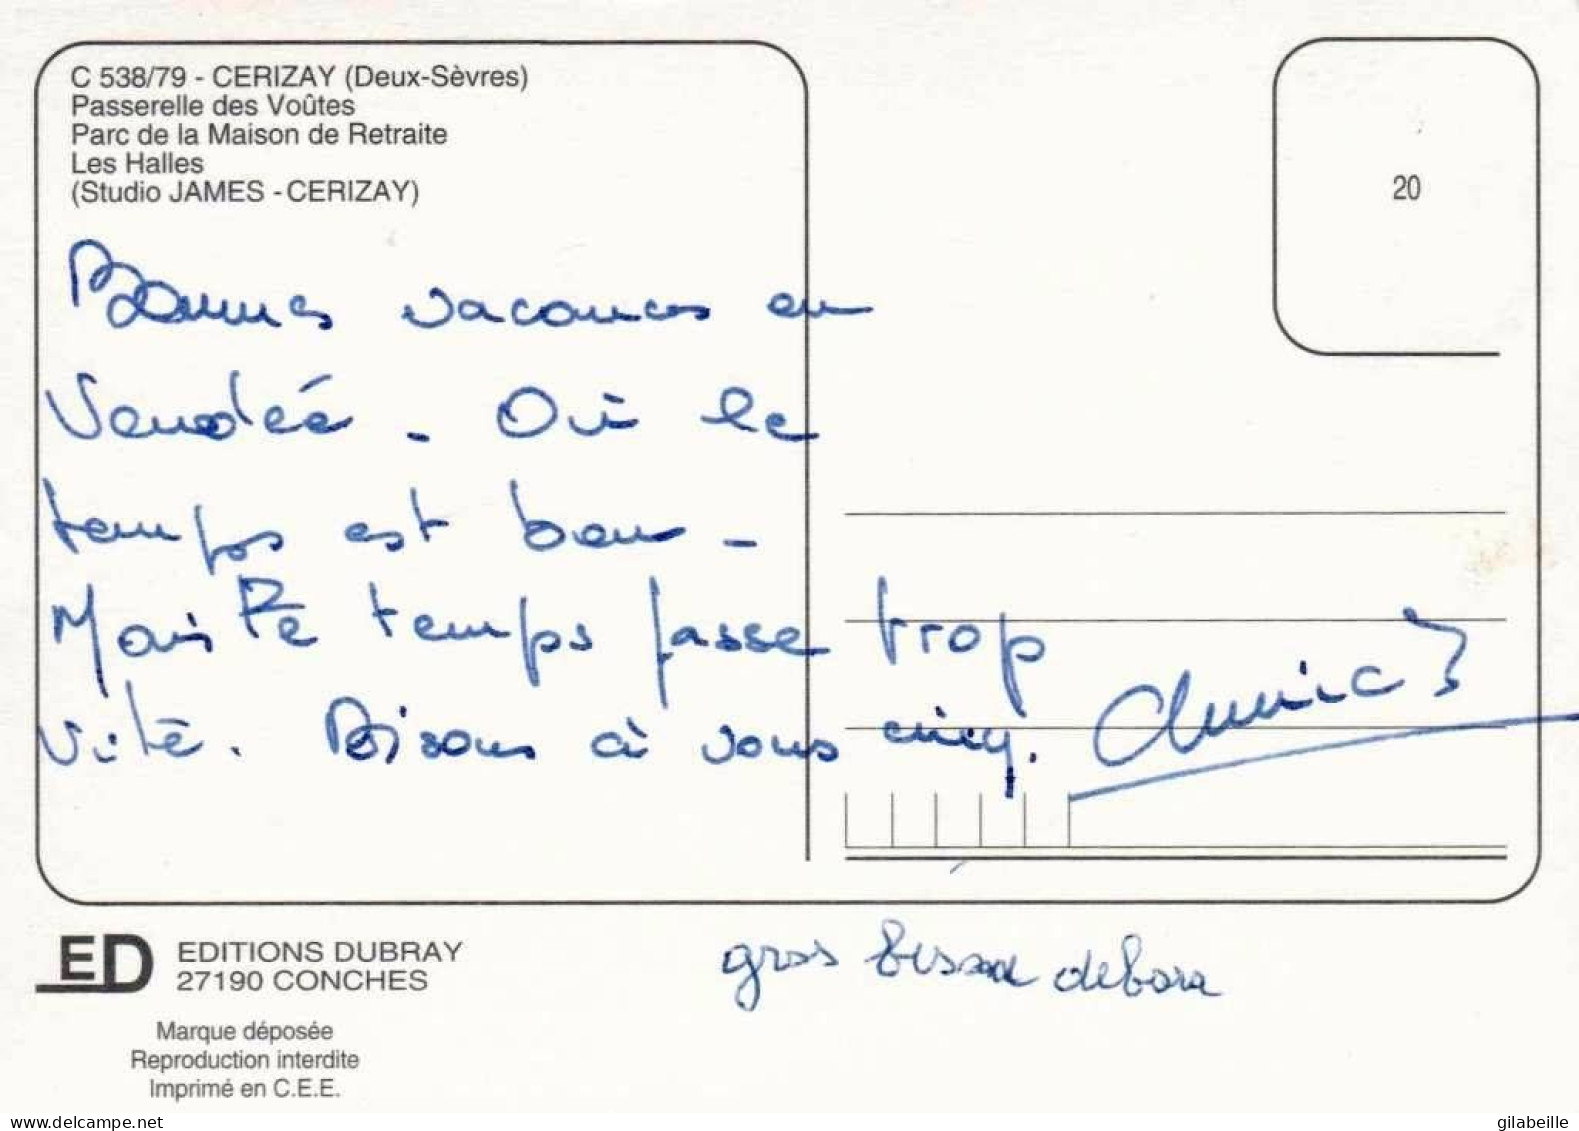 C 538/79 - CERIZAY (Deux-Sèvres)
Passerelle des Voûtes
Parc de la Maison de Retraite
Les Halles
(Studio JAMES - CERIZAY)
20
Bonnes vacances en
Vendée - Où le
temps est bon -
Mais le temps passe trop
vite. Bisous à vous cinq.
gros bisou debora
ED EDITIONS DUBRAY
27190 CONCHES
Marque déposée
Reproduction interdite
Imprimé en C.E.E.
www.delcampe.net
gilabeille